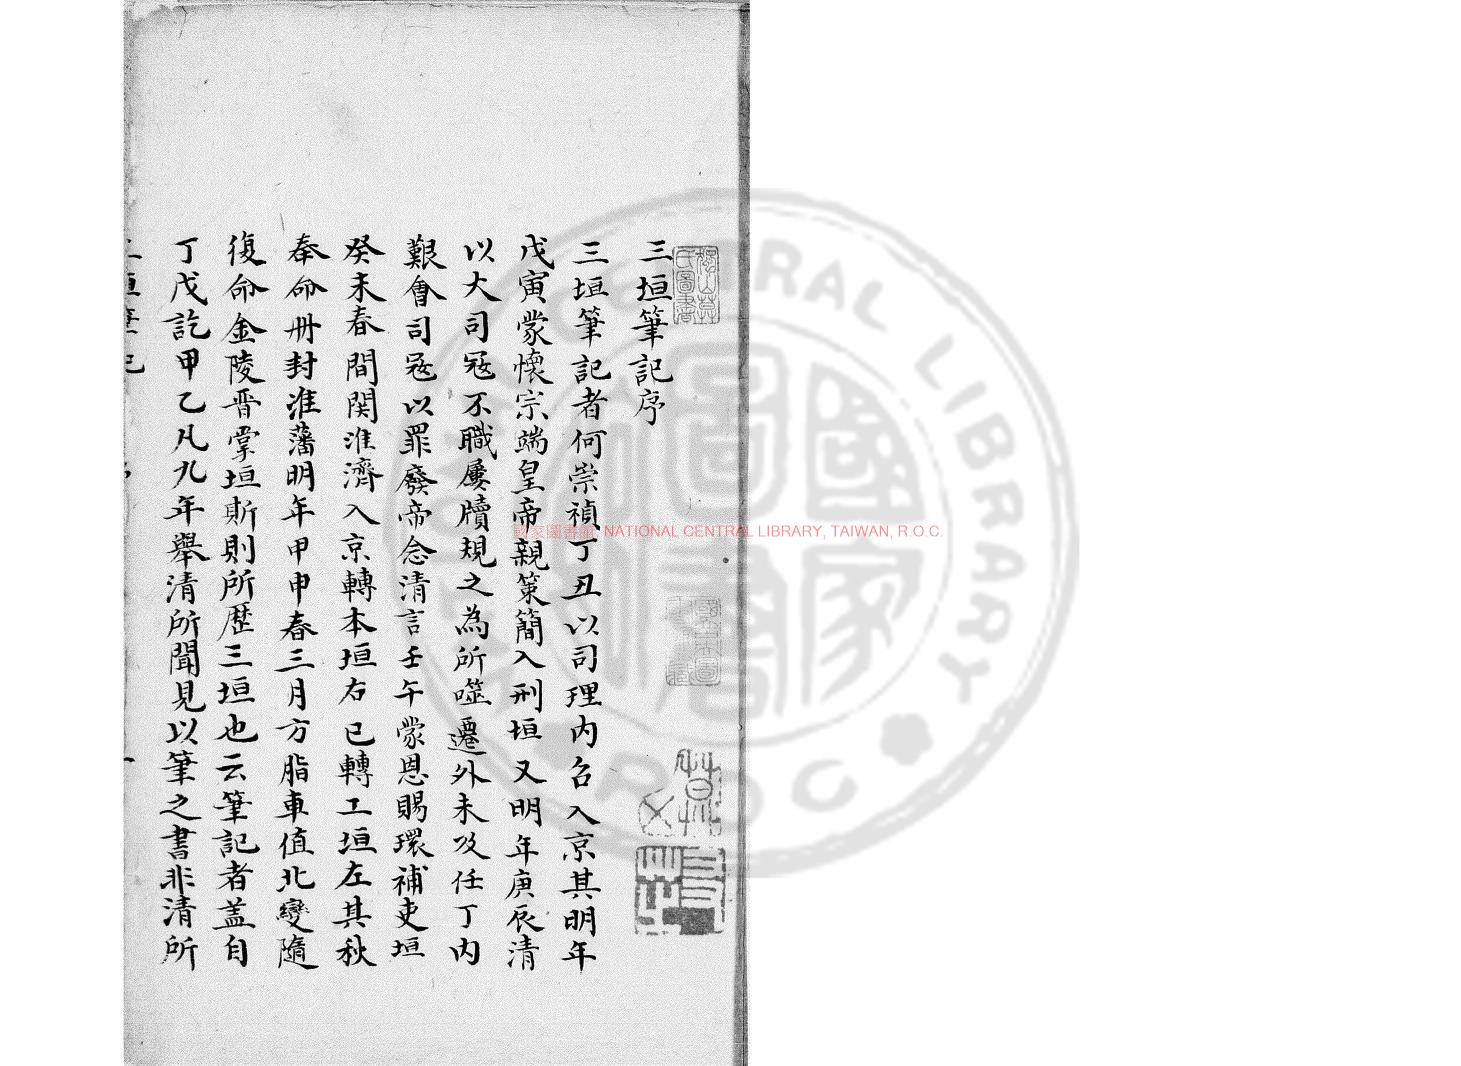 三垣筆記序
三垣筆記者何崇禎丁丑以司理内召入京其明年
戊寅蒙懷宗端皇帝親策簡入刑垣又明年庚辰清
以大司宼不職屢牘規之為所噬遷外未及任丁内
艱會司宼以罪廢帝念清言壬午蒙恩賜環補吏垣
癸未春間関淮濟入京轉本垣右已轉工垣左其秋
奉命冊封淮藩明年甲申春三月方脂車值北變隨
復命金陵晋掌垣斯則所歴三垣也云筆記者盖自
丁戊訖甲乙凡九年舉清所聞見以筆之書非清所
國家圖書館, NATIONAL CENTRAL LIBRARY, TAIWAN, R.O.C.
NATIONAL CENTRAL LIBRARY
ROC
國家圖書館